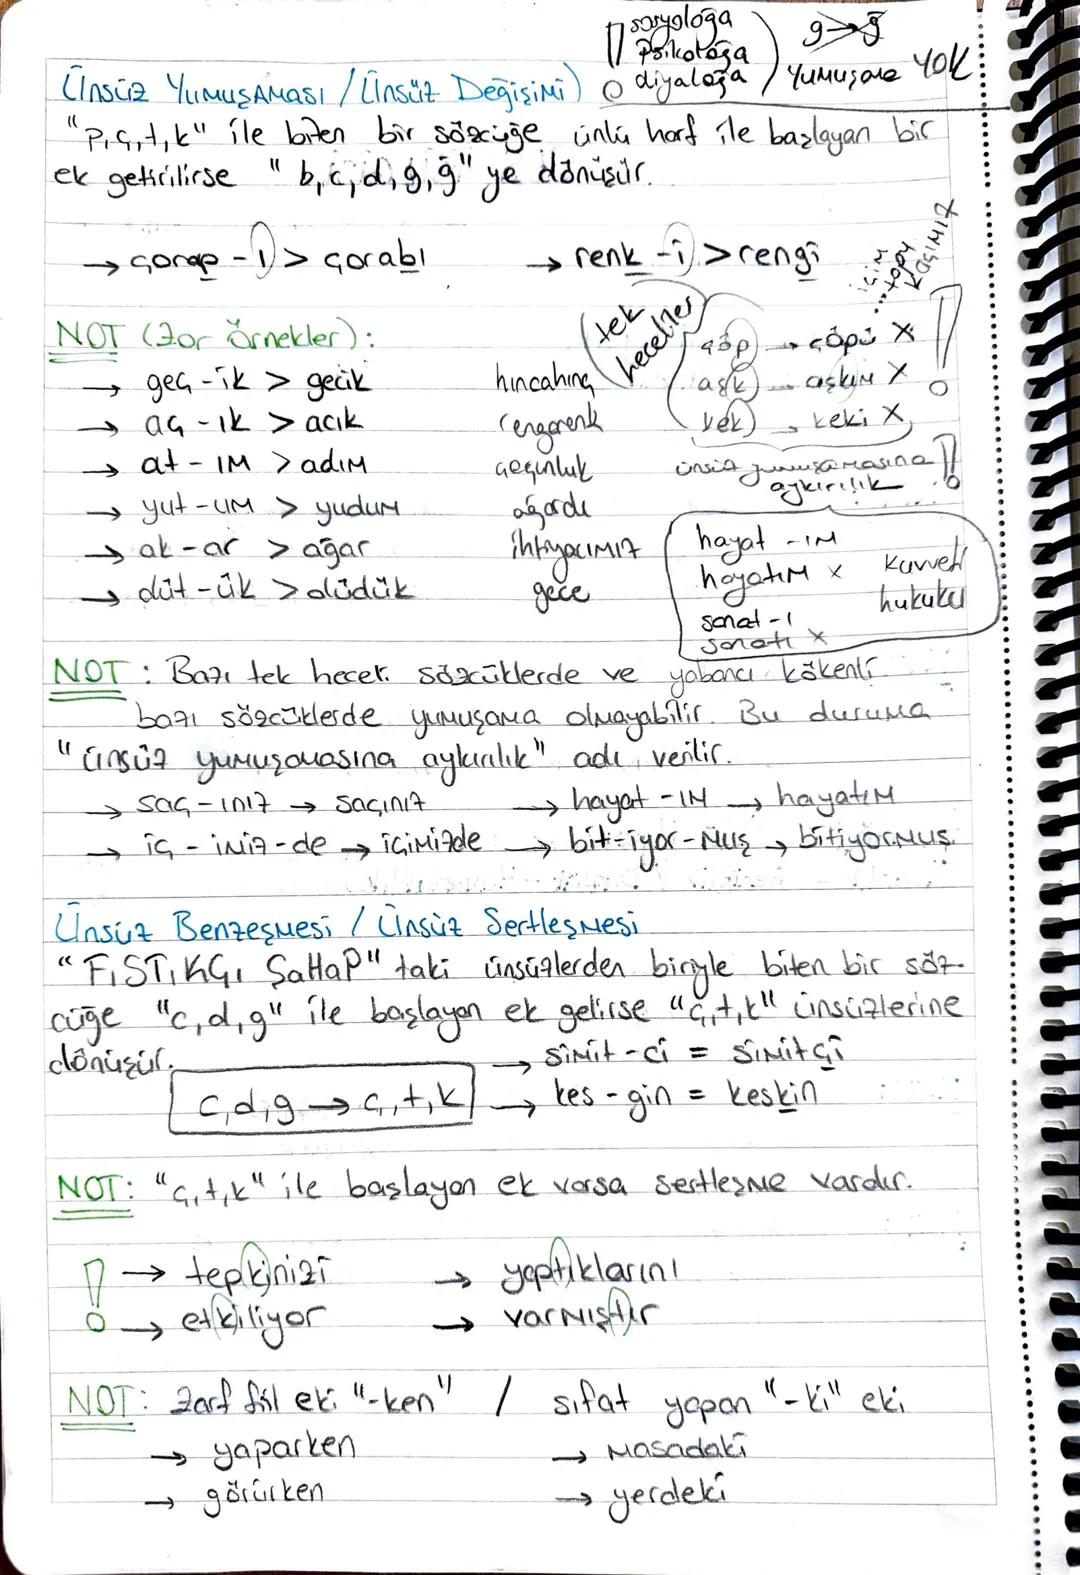 sosyoloğa
psikoloğa
diyaloğa
g → ğ
Yumuşama YOK
Ünsüz Yumuşaması / Ünsüz Değişimi)
"p,ç,t,k" ile biten bir sözcüğe ünlü harf ile başlayan bir
ek getirilirse "b,c,d,g,ğ" ye dönüşür.
→ çorap - ı > çorabı
→ renk - i > rengi
içim
...topu
kaçımız
NOT (Zor Örnekler):
→ geç - ik > gecik
→ aç - ık > acık
→ at - ım > adım
→ yut - um > yudum
→ ak - ar > ağar
→ düt - ük > düdük
hıncahınç
rengarenk
geçginlik
ağardı
ihtiyacımız
gece
tek
heceliler
çöp → çöpü X
aşk → aşkım X
kek → keki X
ünsüz yumuşamasına
aykırılık
hayat - ım
hayatım x
sanat - ı
sanatı x
kuvveti
hukuku
NOT : Bazı tek hecel. sözcüklerde ve yabancı kökenli
bazı sözcüklerde yumuşama olmayabilir. Bu duruma
"ünsüz yumuşamasına aykırılık" adı verilir.
→ saç - ınız → saçınız
→ hayat - ım → hayatım
→ iç - imiz - de → içimizde
→ bit - iyor - muş → bitiyormuş.
Ünsüz Benzeşmesi / Ünsüz Sertleşmesi
"FıSTıKÇı ŞaHaP" taki ünsüzlerden biriyle biten bir söz-
cüğe "c,d,g" ile başlayan ek gelirse "ç,t,k" ünsüzlerine
dönüşür.
→ simit - ci = simitçi
c,d,g → ç,t,k
→ kes - gin = keskin
NOT: "ç,t,k" ile başlayan ek varsa sertleşme vardır.
! → tepkinizi
→ yaptıklarını
→ etkiliyor
→ varmıştır
NOT: Zarf fiil eki "-ken" / sıfat yapan "-ki" eki
→ yaparken
→ masadaki
→ görürken
→ yerdeki